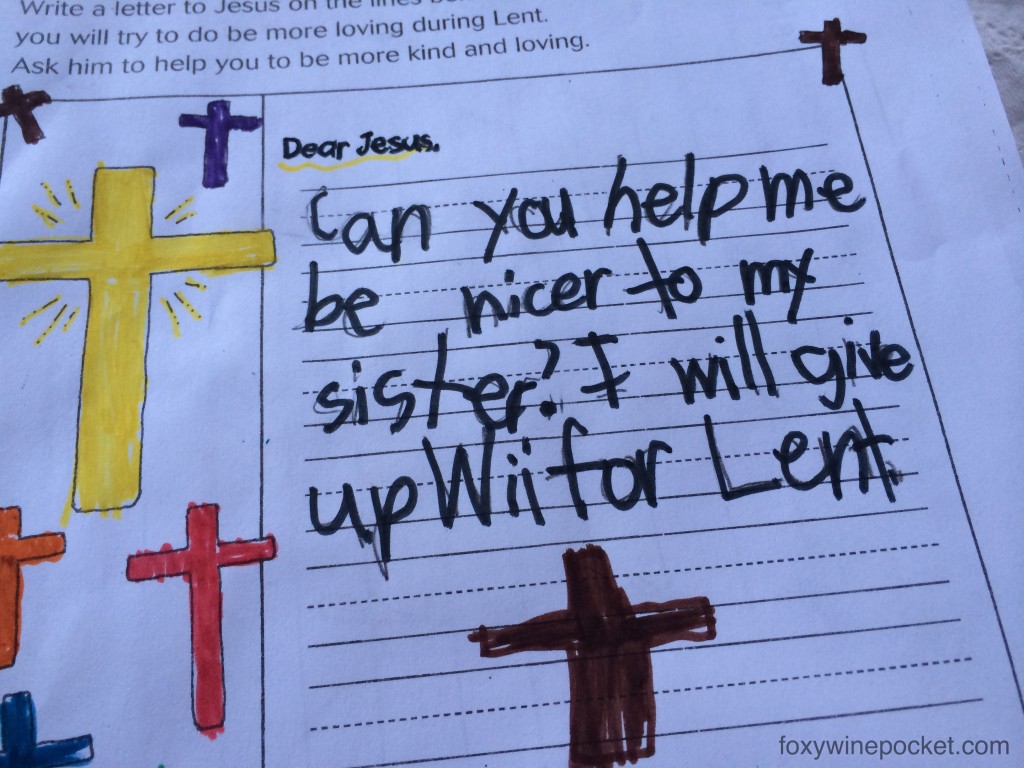 Write a letter to Jesus on the lines
you will try to do be more loving during Lent.
Ask him to help you to be more kind and loving.
Dear Jesus,
Can you help me
be nicer to my
sister? I will give
up Wii for Lent
foxywinepocket.com